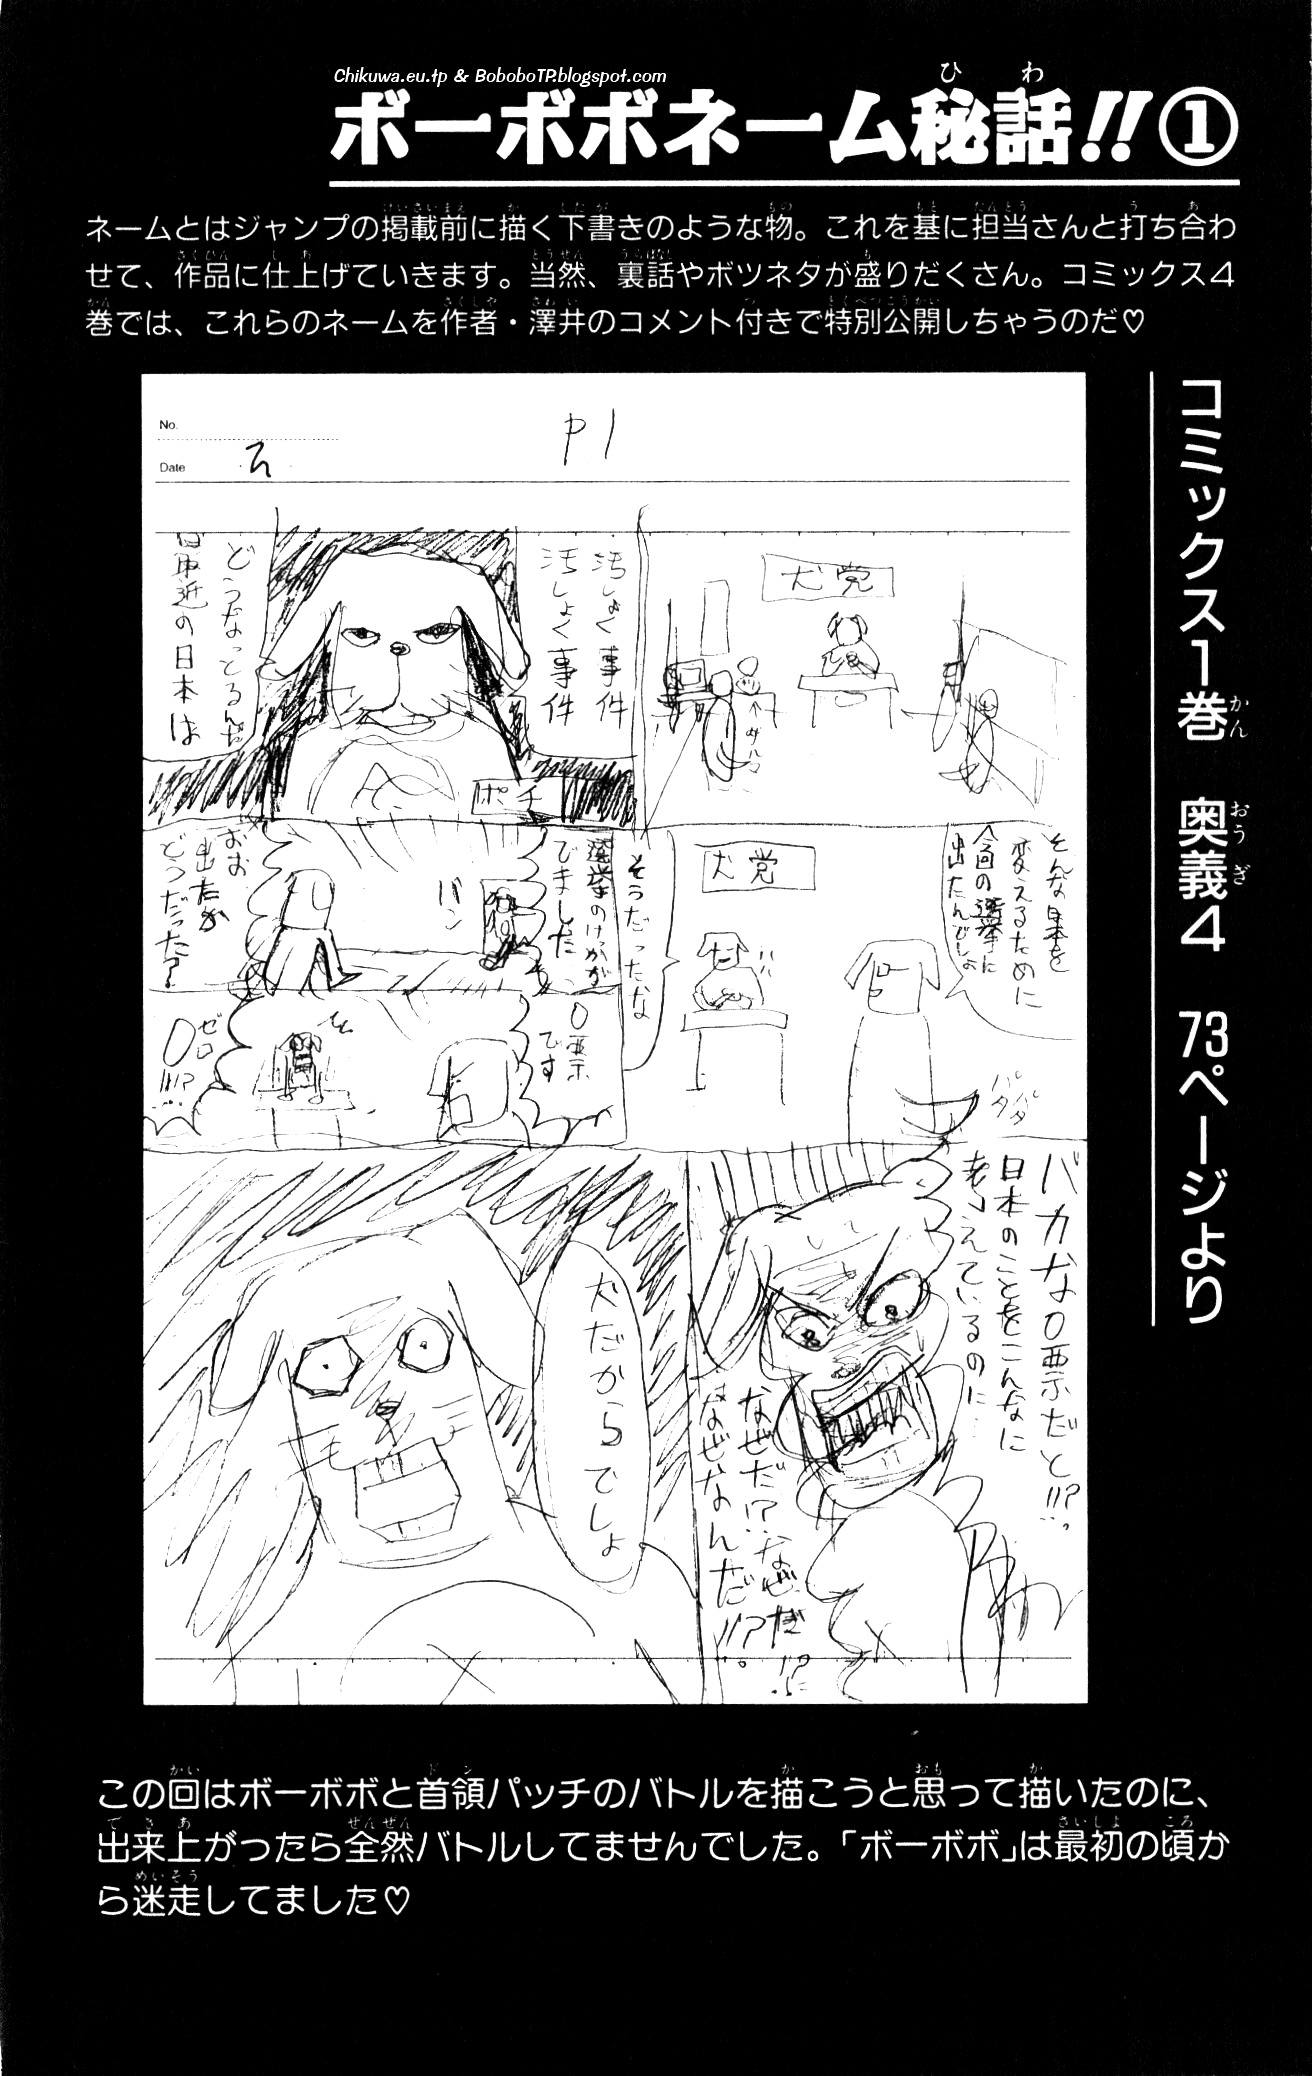 Chikuwa.eu.tp & BoboboTP.blogspot.com
ボーボボネーム秘話!!①
ネームとはジャンプの掲載前に描く下書きのような物。これを基に担当さんと打ち合わ
せて、作品に仕上げていきます。当然、裏話やボツネタが盛りだくさん。コミックス4
巻では、これらのネームを作者・澤井のコメント付きで特別公開しちゃうのだ♡
コミックス1巻 奥義4 73ページより
No.
Date
P1
犬党
汚しょく事件
汚しょく事件
どうなっとるんだ
最近の日本は
ポチ
そんな日本を
変えるために
今回の選挙に
出たんでしょ
犬党
パタパタ
そうだったな
選挙のけっかが
でました
バン
おお
出たか
どうだった?
0票
です
ゼロ
0!!!?
バカな0票だと!!?
日本のことをこんなに
考えているのに…
なぜだ!?なぜだ!?
なぜなんだ!!?
犬だからでしょ
この回はボーボボと首領パッチのバトルを描こうと思って描いたのに、
出来上がったら全然バトルしてませんでした。「ボーボボ」は最初の頃か
ら迷走してました♡